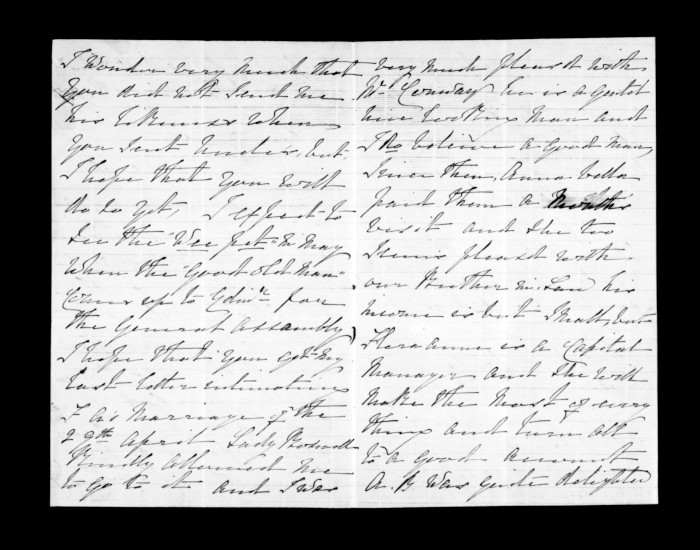 I Wonder very Much that
you did not Send me
his likeness When
you Sent Hunders, but
I hope that you will
do so yet, I expect to
See the "Wee pet" in May
When the "Good old Man"
Comes up to Edinr for
the General Assembly,
I hope that you got my
Last letter intimating
F A's Marriage of the
29th April Lady Boswell
Kindly allowed me
to go to it and I was
very much pleased with
Mr Conway he is a quiet
nice looking Man and
I do believe a Good Man,
Since then, Anna-bella
paid them a Months
visit and She too
Seems pleased with
our Brother in-Law his
income is but Small, but
Flora anne is a Capital
Manager and She will
make the Most of every
thing and turn all
to a good account
A. B was quite delighted